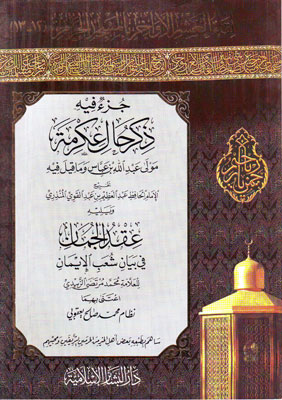 جزء فيه
ذكر حال عكرمة
مولى عبد الله بن عباس وما قيل فيه
تخريج
الإمام الحافظ عبد العظيم بن عبد القوي المنذري
ويليه
عقد الجمان
في بيان شعب الإيمان
للعلامة محمد مرتضى الزبيدي
اعتنى بهما
نظام محمد صالح يعقوبي
ساهم بطبعه بعض أهل الخير من الحرمين الشريفين ومحبيهم
دار البشائر الإسلامية